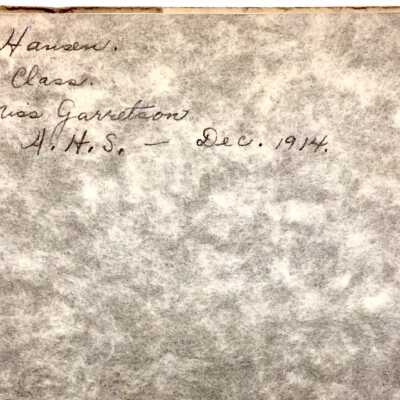 Hansen.
Class.
Miss Garretson
A. H. S. — Dec. 1914.